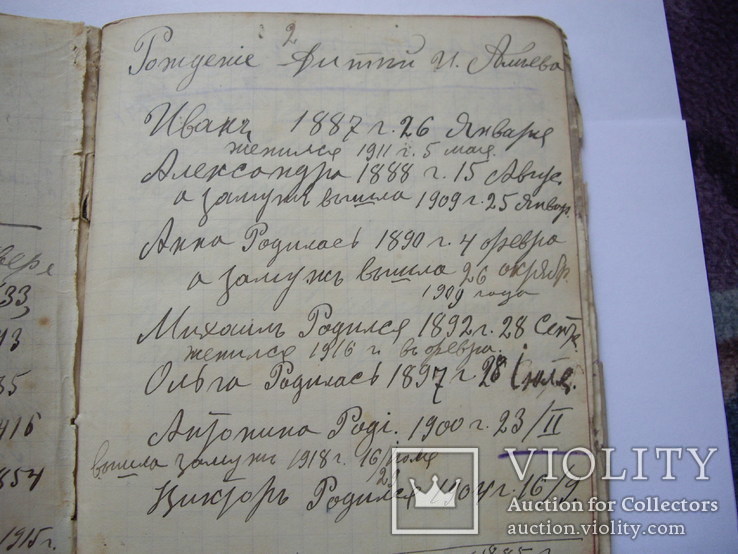 2
Рожденіе Дитти И. Алиева
Иванъ 1887 г. 26 Января
женился 1911 г. 5 мая.
Александра 1888 г. 15 Авгус.
а замужъ вышла 1909 г. 25 Январ.
Анна Родилась 1890 г. 4 февра
а замужъ вышла 26 октябр.
1909 года
Михаилъ Родился 1892 г. 28 Сент.
женился 1916 г. въ февра.
Ольга Родилась 1897 г 28 Іюля.
Антонина Роді. 1900 г. 23/II
вышла замужъ 1918 г. 16
Викторъ Родился 1904 г. 16/9.
33,
13
35
416
854
1915 г.
VIOLITY
Auction for Collectors
auction.violity.com